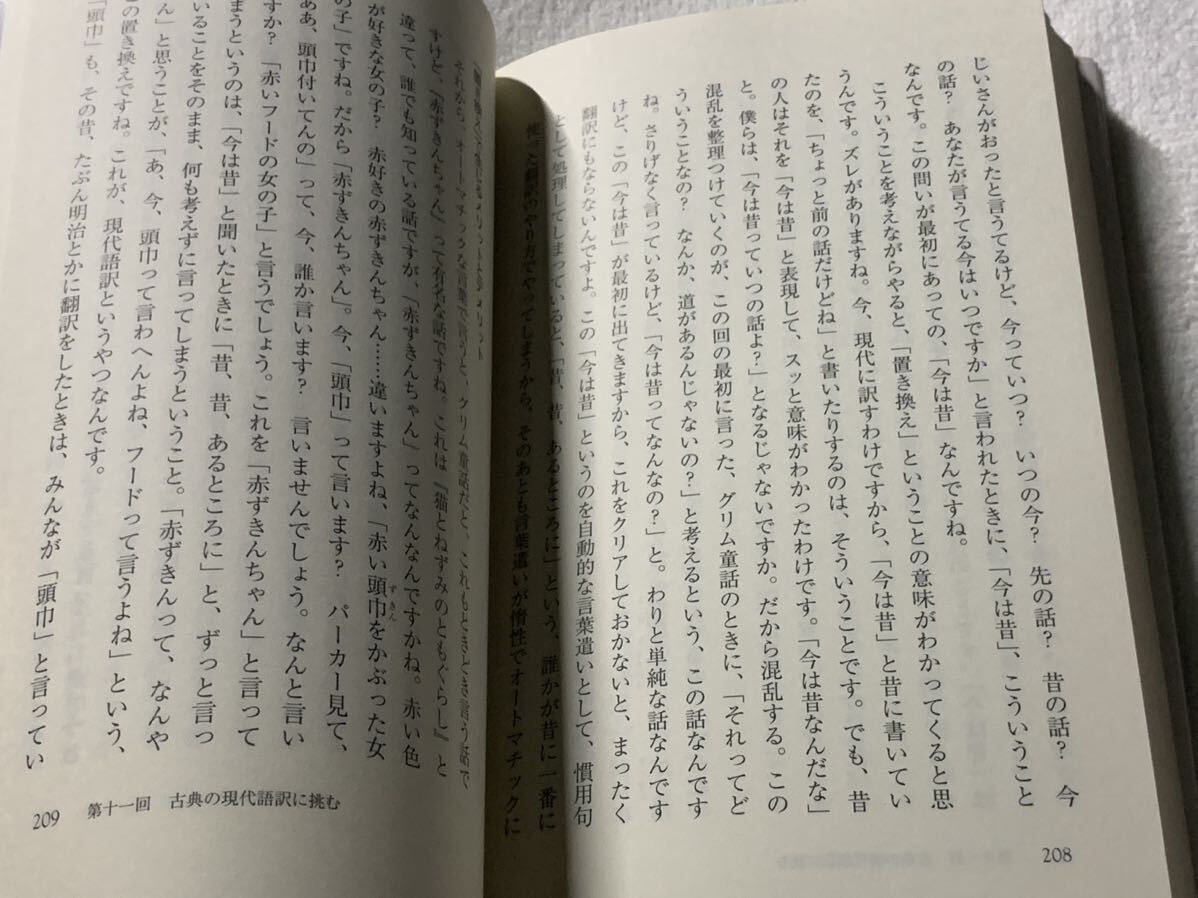 じいさんがおったと言うてるけど、今っていつ？　いつの今？　先の話？　昔の話？　今
の話？　あなたが言うてる今はいつですか」と言われたときに、「今は昔」、こういうこと
なんです。この問いが最初にあっての、「今は昔」なんですね。
こういうことを考えながらやると、「置き換え」ということの意味がわかってくると思
うんです。ズレがありますね。今、現代に訳すわけですから、「今は昔」と昔に書いてい
たのを、「ちょっと前の話だけどね」と書いたりするのは、そういうことです。でも、昔
の人はそれを「今は昔」と表現して、スッと意味がわかったわけです。「今は昔なんだな」
と。僕らは、「今は昔っていつの話よ？」となるじゃないですか。だから混乱する。この
混乱を整理つけていくのが、この回の最初に言った、グリム童話のときに、「それってど
ういうことなの？　なんか、道があるんじゃないの？」と考えるという、この話なんです
ね。さりげなく言っているけど、「今は昔ってなんなの？」と。わりと単純な話なんです
けど、この「今は昔」が最初に出てきますから、これをクリアしておかないと、まったく
翻訳にもならないんですよ。この「今は昔」というのを自動的な言葉遣いとして、慣用句
として処理してしまっていると、「昔、昔、あるところに」という、誰かが昔に一番に
使った翻訳のやり方でやってしまうから、そのあとも言葉遣いが惰性でオートマチックに
208
それから、オートマチックな言葉で言うと、グリム童話だと、これもときどき言う話で
すけど、『赤ずきんちゃん』って有名な話ですね。これは『猫とねずみのともぐらし』と
違って、誰でも知っている話ですが、「赤ずきんちゃん」ってなんなんですかね。赤い色
が好きな女の子？　赤好きの赤ずきんちゃん……違いますよね、「赤い頭巾をかぶった女
ずきん
の子」ですね。だから「赤ずきんちゃん」。今、「頭巾」って言います？　パーカー見て、
ああ、頭巾付いてんの」って、今、誰か言います？　言いませんでしょう。なんと言い
すか？　「赤いフードの女の子」と言うでしょう。これを「赤ずきんちゃん」と言って
まうというのは、「今は昔」と聞いたときに「昔、昔、あるところに」と、ずっと言っ
いることをそのまま、何も考えずに言ってしまうということ。「赤ずきんって、なんや
ん」と思うことが、「あ、今、頭巾って言わへんよね、フードって言うよね」という、
の置き換えですね。これが、現代語訳というやつなんです。
「頭巾」も、その昔、たぶん明治とかに翻訳をしたときは、みんなが「頭巾」と言ってい
209　第十一回　古典の現代語訳に挑む